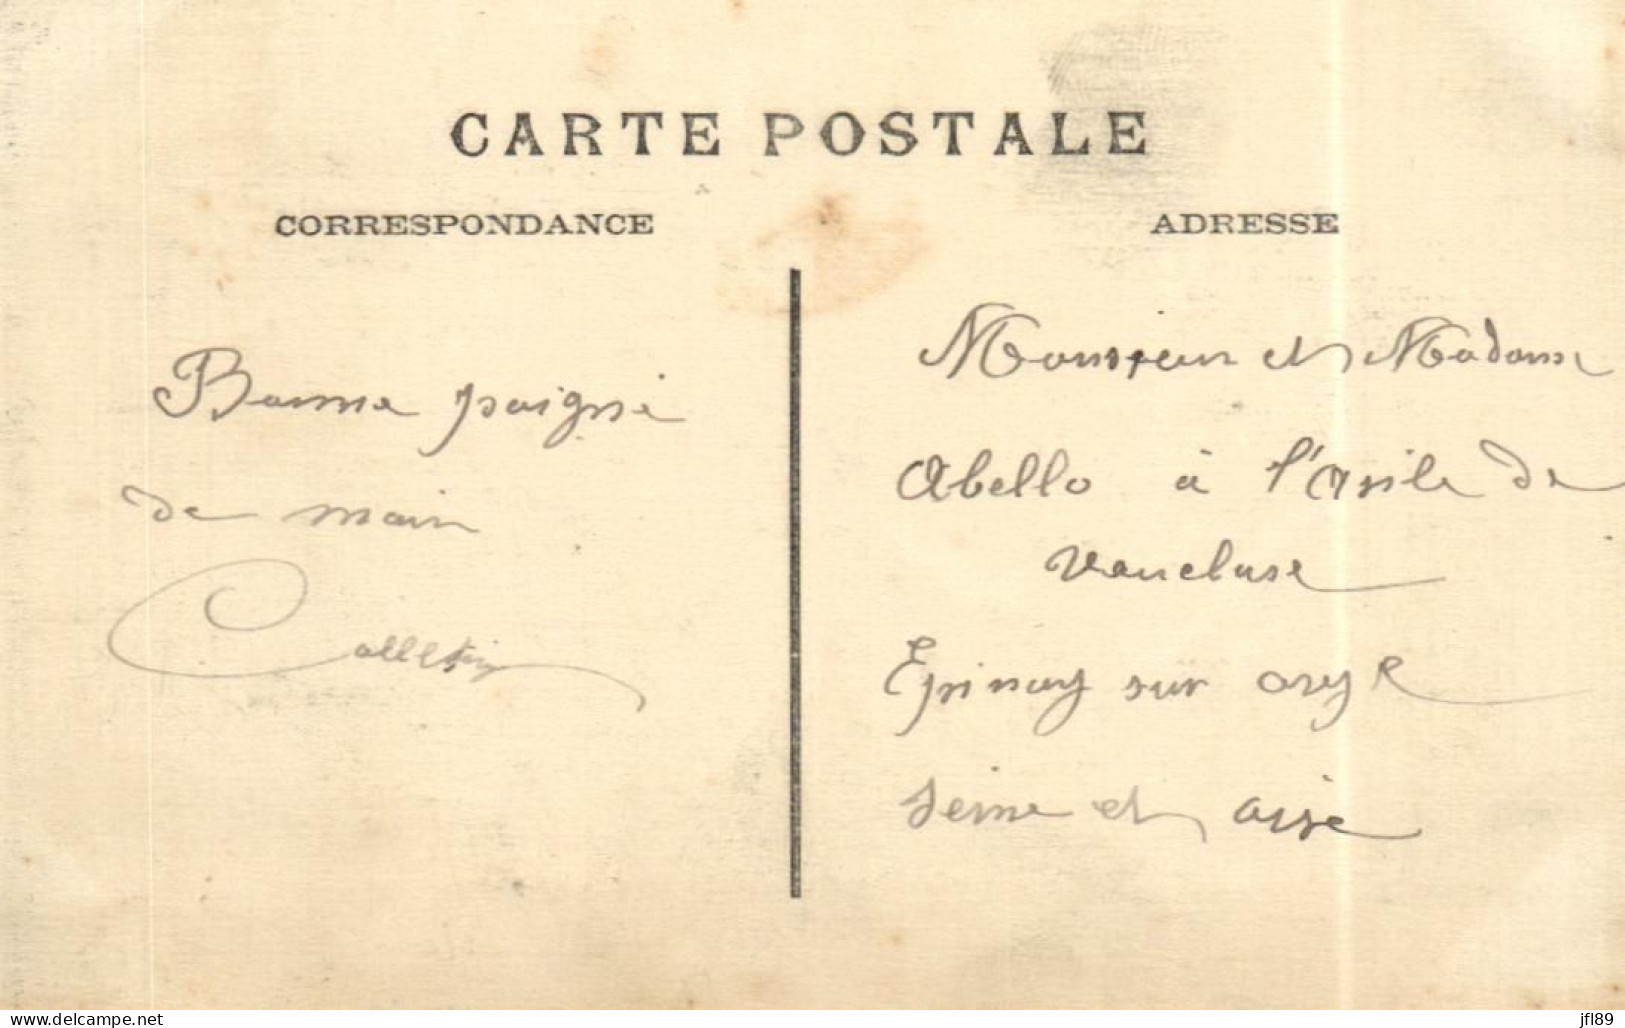 CARTE POSTALE
CORRESPONDANCE
ADRESSE
Bonne poigné
de main
Monsieur et Madame
Abello à l'Asile de
Vaucluse
Epinay sur orge
Seine et oise
www.delcampe.net
jfl89